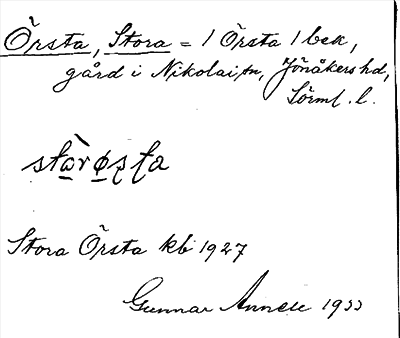 Örsta, Stora = / Örsta / bek,
gård i Nikolai sn, Jönåkers hd,
Sörml. l.
Stora Örsta kb 1927
Gunnar Annell 1933